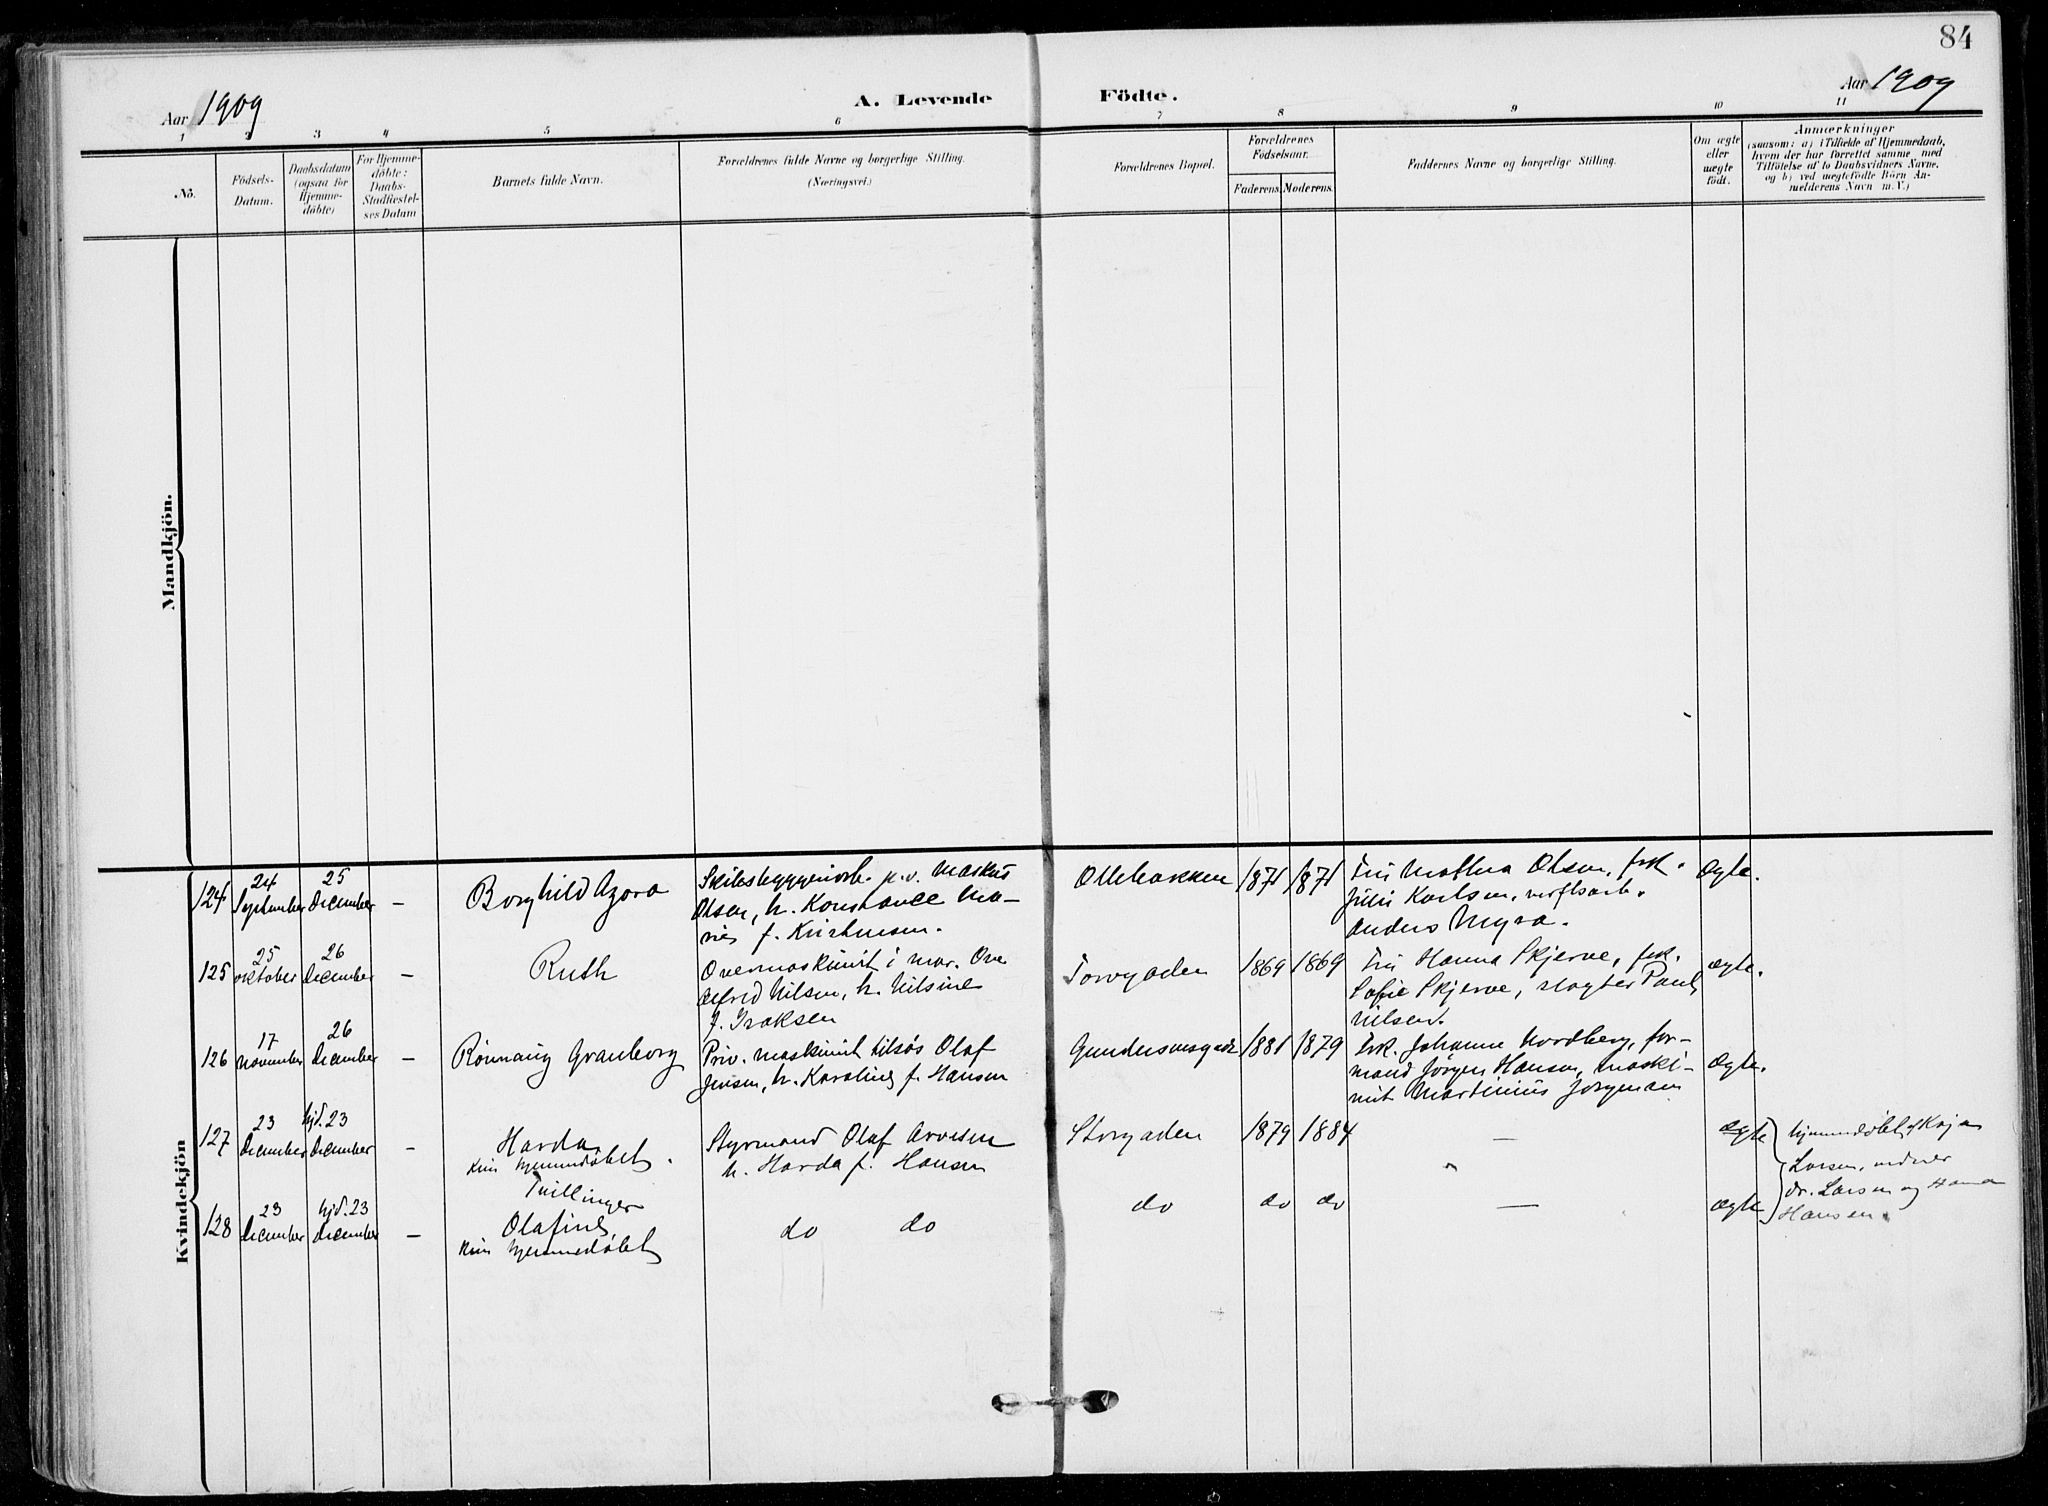 84
Aar 1909
A. Levende Födte.
Aar 1909
1 2 3 4 5 6 7 8 9 10 11
No.
Födsels-
Datum.
Daabsdatum
(ogsaa for
Hjemme-
döbte)
For Hjemme-
döbte:
Daabs-
Stadfæstel-
ses Datum
Barnets fulde Navn.
Forældrenes fulde Navne og borgerlige Stilling.
(Næringsvei.)
Forældrenes Bopæl.
Forældrenes
Födselsaar.
Faderens. Moderens.
Faddernes Navne og borgerlige Stilling.
Om ægte
eller
uægte
födt.
Anmærkninger
(saasom: a) i Tilfælde af Hjemmedaab,
hvem der har forrettet samme med
Tilföielse af to Daabsvidners Navne.
og b) ved uægtefödte Börn An-
melderens Navn m. V.)
Mandkjön.
Kvindekjön
124
24
September
25
December
–
Borghild Agora
Olsen, h. Konstance Ma-
rie f. Kristensen.
Ollebakken
1871 1871
Fru Mathea Olsen, frk.
Julie Karlsen, verftsarb.
Anders Myra.
Ægte.
125
25
oktober
26
December
–
Ruth
Overmaskinist i mar. Ove
Alfred Nilsen, h. Nilsine
f. Isaksen
Torvgaden
1869 1869
Fru Hanna Skjerve, frk.
Sofie Skjerve, slagter Paul
Nilsen.
ægte.
126
17
November
26
December
–
Rønnaug Granborg
Priv. maskinist tilsøs Olaf
Jensen, h. Karoline f. Hansen
Gundersensgade
1881 1879
Frk. Johanne Nordberg, for-
mand Jørgen Hansen, maski-
nist Martinius Jørgensen
Ægte.
127
23
December
hjd. 23
December
–
Harda
kun hjemmedøbt.
Styrmand Olaf Arvesen
h. Harda f. Hansen
Storgaden
1879 1884
–
ægte
Tvillinger
128
23
December
hjd. 23
December
–
Olafine
kun hjemmedøbt
do do
do
do do
–
ægte
hjemmedøbt af Kaja
Larsen, vidner
dr. Larsen og Hanna
Hansen.